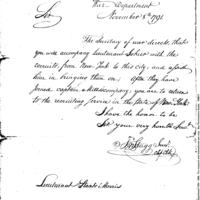 War Department
November 8th 1792
Sir
The Secretary of war directs that
you will accompany Lieutenant with the
recruits, from New York to this city, and afford
him in bringing them on. After they have
joined captain Mills company, you are to return
to the recruiting service in the State of New York
I have the honor to be
Sir your very humble Servt
Jno Stagg Junr
Lieutenant Staats Morris